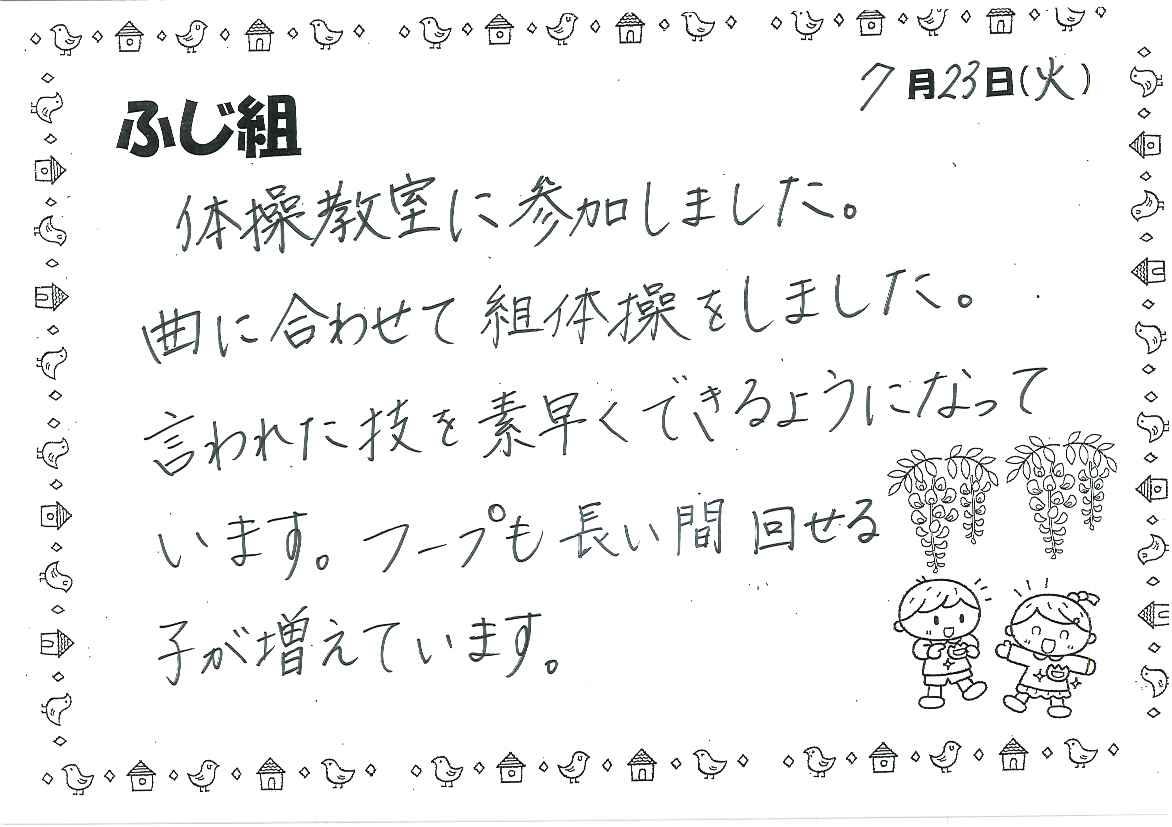 7月23日(火)
ふじ組
体操教室に参加しました。
曲に合わせて組体操をしました。
言われた技を素早くできるようになって
います。フープも長い間回せる
子が増えています。